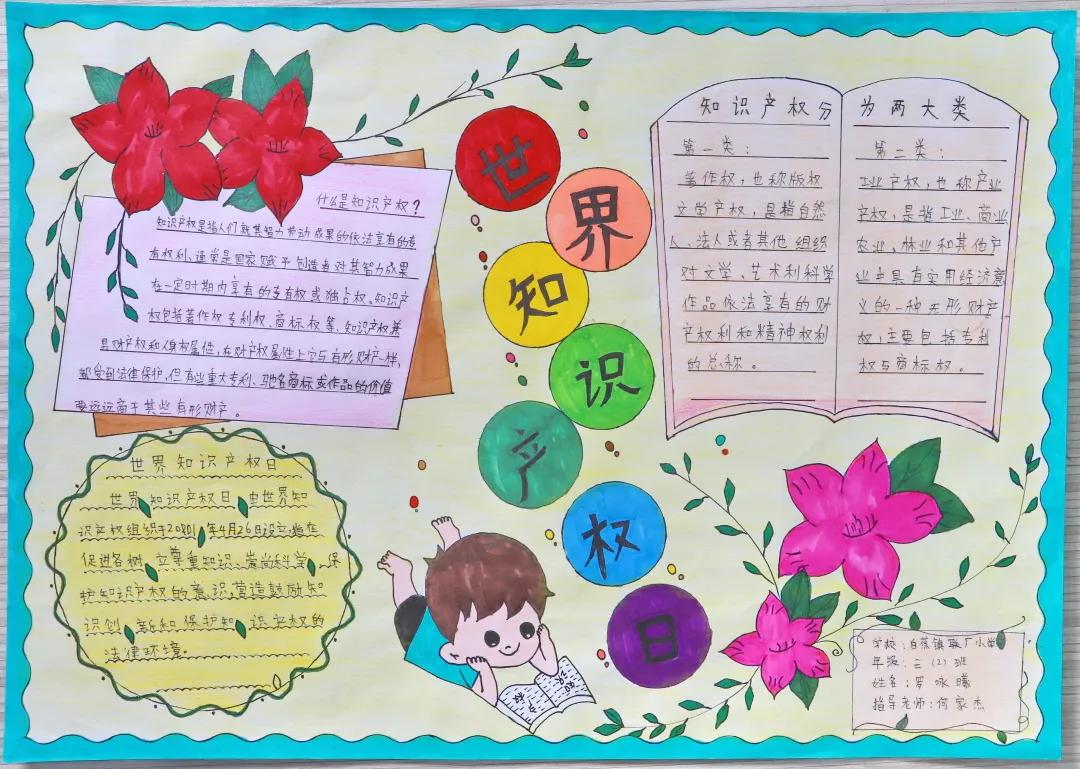 世界知识产权日
什么是知识产权?
知识产权是指人们就其智力劳动成果的依法享有的专
有权利、通常是国家赋予创造者对其智力成果
在一定时期内享有的专有权或独占权、知识产
权包括著作权专利权、商标权等、知识产权兼
具财产权和人身权属性,在财产权属性上它与有形财产一样,
都受到法律保护,但有些重大专利、驰名商标或作品的价值
要远远高于其些有形财产。
知识产权分为两大类
第一类:
著作权,也称版权
文学产权,是指自然
人、法人或者其他组织
对文学、艺术利科学
作品依法享有的财
产权利和精神权利
的总称。
第二类:
工业产权,也称产业
产权,是指工业、商业
农业、林业和其他产
业中具有实用经济意
义的一种无形财产
权,主要包括专利
权与商标权。
世界知识产权日
世界知识产权日,由世界知
识产权组织于2001年4月26日设立,旨在
促进各树立尊重知识、崇尚科学、保
护知识产权的意识,营造鼓励知
识创新和保护知识产权的
法律环境.
知识
产权
学校:白蕉镇联厂小学
年级:三(2)班
姓名:罗咏曦
指导老师:何家杰